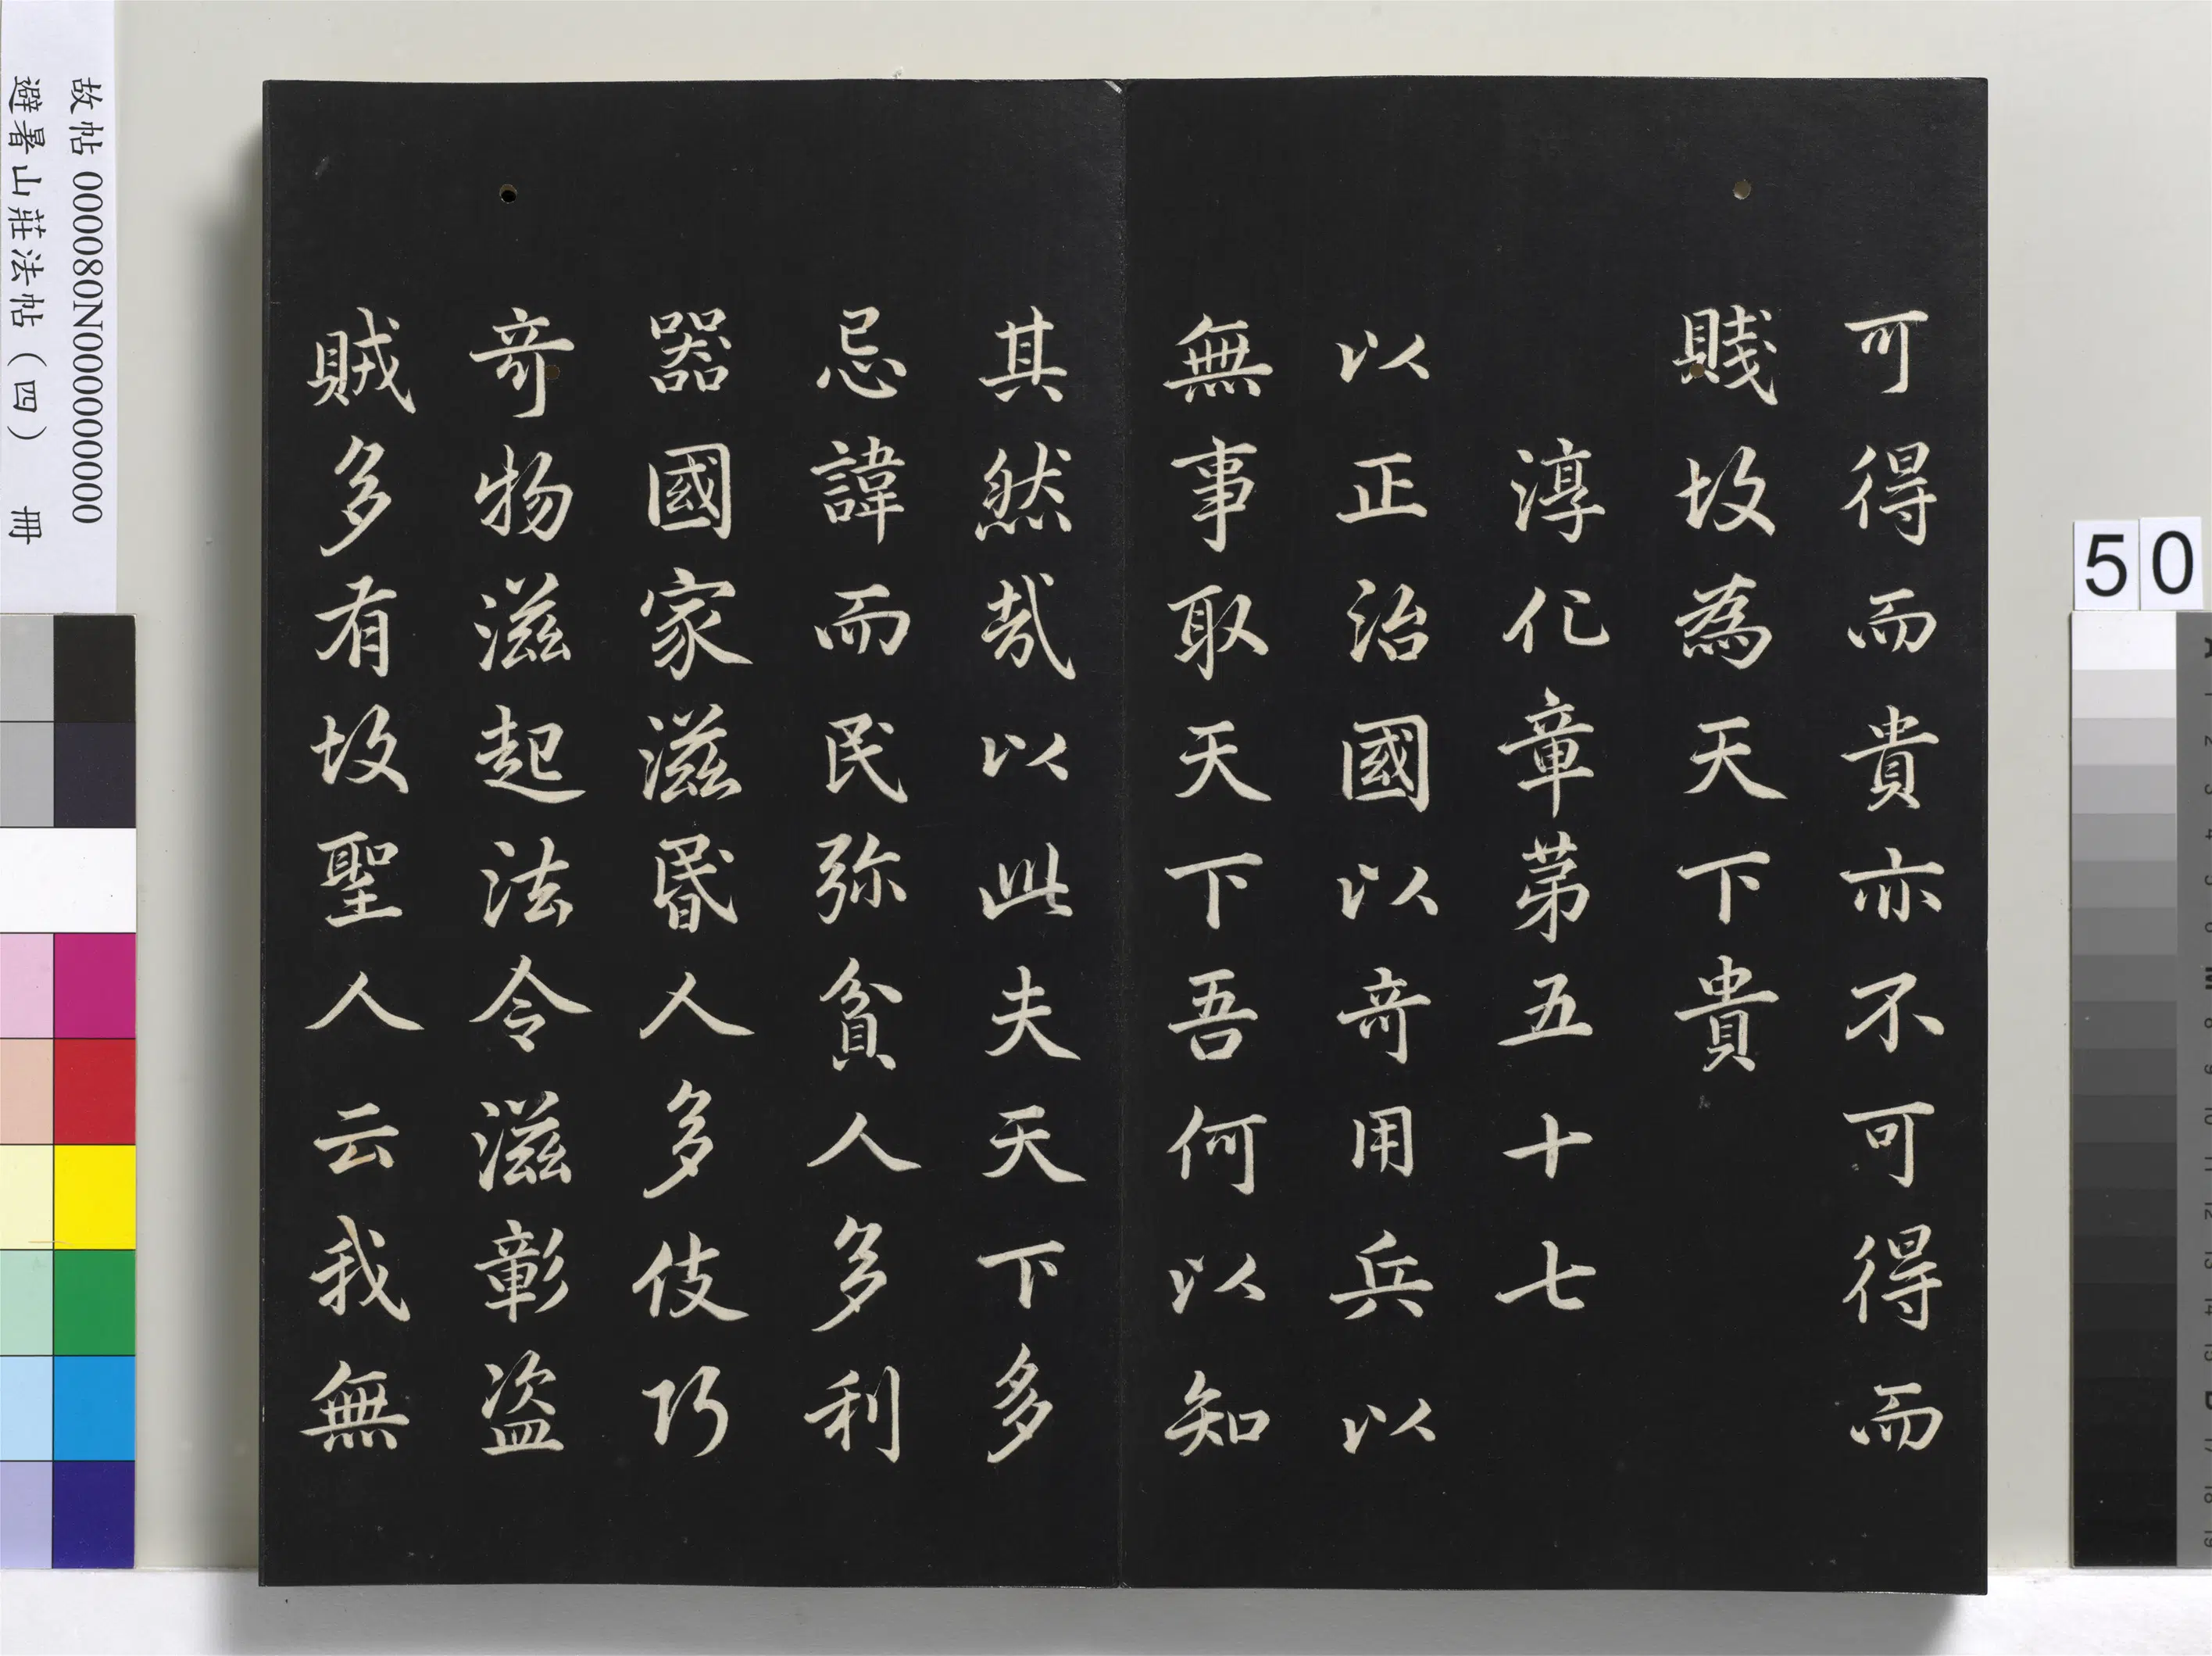 可得而貴亦不可得而
賤故為天下貴
淳化章第五十七
以正治國以奇用兵以
無事取天下吾何以知
其然哉以此夫天下多
忌諱而民弥貧人多利
器國家滋昬人多伎巧
奇物滋起法令滋彰盗
賊多有故聖人云我無
故帖 000080N000000000
避暑山莊法帖（四） 冊
50